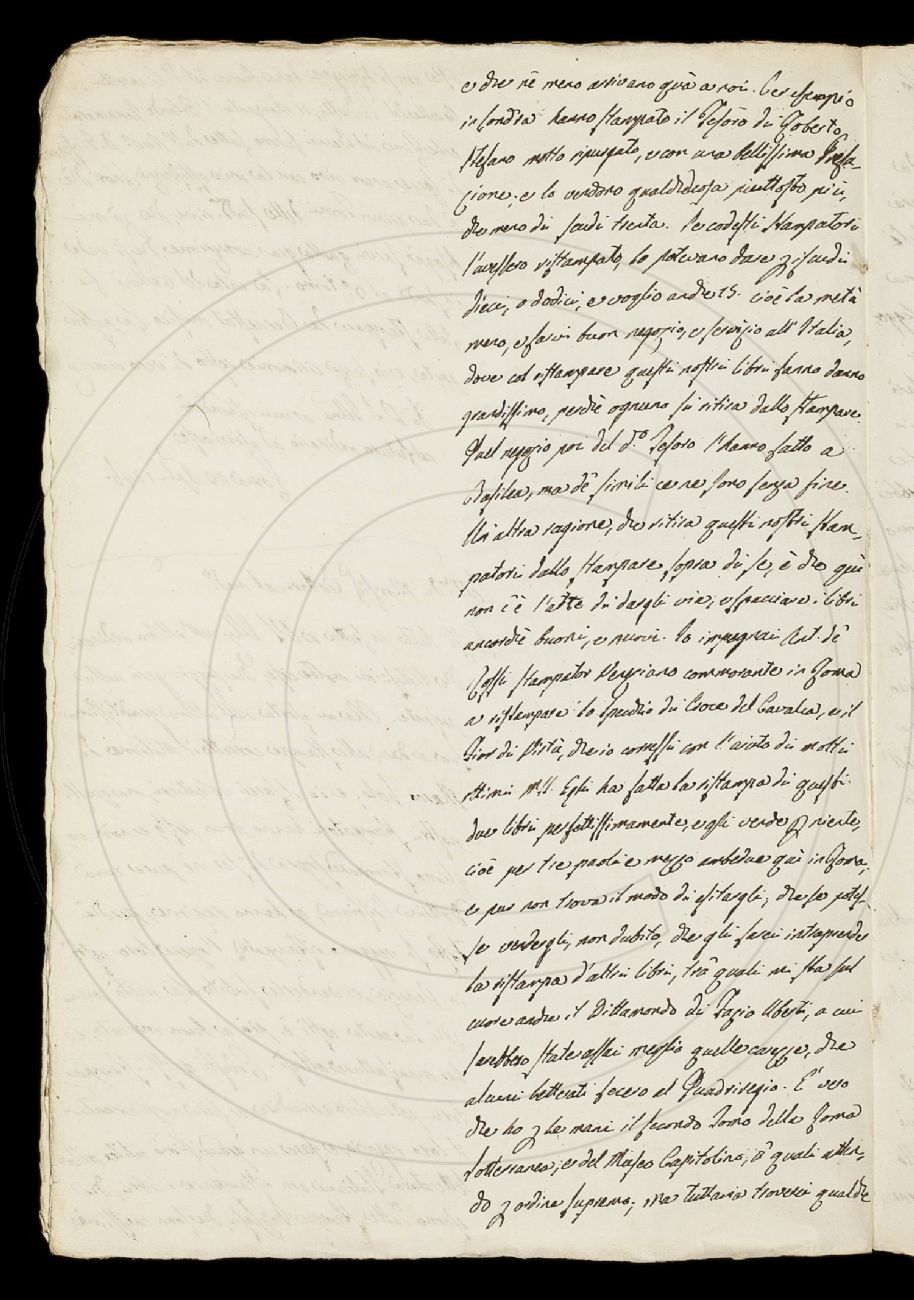 e che nè meno arrivano quà a noi. Per esempio
in Londra hanno stampato il Tesoro di Roberto
Stefano molto ripurgato, e con una bellissima Prefa-
zione; e lo vendono qualchecosa piuttosto più,
che meno di scudi trenta. Se codesti Stampatori
l'avessero ristampato, lo potevano dare p iscudi
dieci, o dodici, e voglio anche 15. cioè la metà
meno, e farvi buon negozio, e servizio all'Italia,
dove col ristampare questi nostri libri fanno danno
grandissimo, perchè ognuno si ritira dallo stampare.
Quel negozio poi del d.º Tesoro l'hanno fatto a
Basilea, ma dè simili ce ne sono senza fine.
Un'altra ragione, che ritira questi nostri Stam-
patori dallo stampare sopra di se, è che quì
non c'è l'arte di dargli via, e spacciare i libri
ancorchè buoni, e nuovi. Io impegnai Ant. dè
Rossi stampator Veneziano commorante in Roma
a ristampare lo Specchio di Croce del Cavalca, e il
Fior di Virtù, che io corressi con l'aiuto di molti
ottimi MSS. Egli ha fatta la ristampa di questi
due libri perfettissimamente, e gli vende p niente,
cioè per tre paoli e mezzo ambedue quì in Roma,
e pur non trova il modo di esitargli, che se potes-
se vendergli, non dubito, che gli farei intraprender
la ristampa d'altri libri, trà quali mi sta sul
cuore anche il Dittamondo di Fazio Uberti, a cui
sarebbero state assai meglio quelle carezze, che
alcuni letterati fecero al Quadriregio. E' vero
che ho p le mani il secondo Tomo della Roma
Sotterranea, e del Museo Capitolino, à quali atten-
do p ordine supremo; ma tuttavia troverei qualche